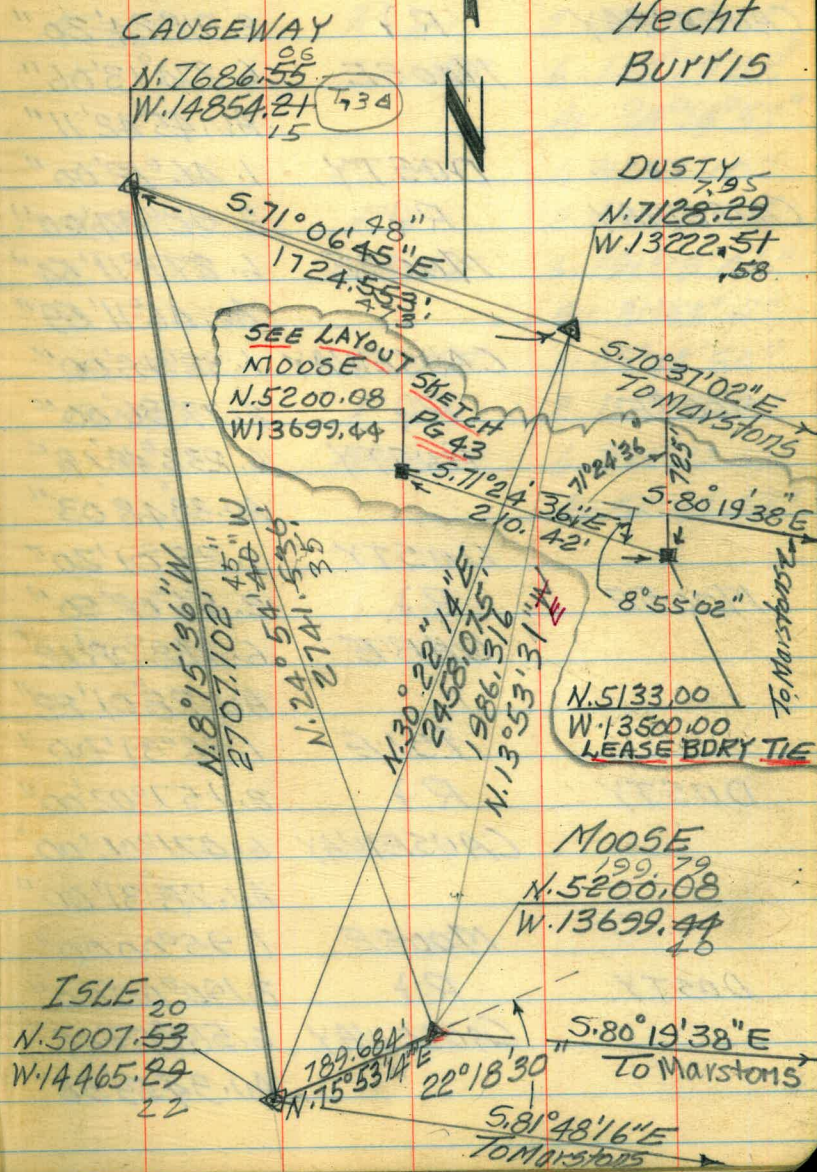 CAUSEWAY
06
N.7686.55
W.14854.21
15
T₇3Δ
N
Hecht
Burris
DUSTY
7.95
N.7128.29
W.13222.51
.58
48"
S.71°06'45"E
1724.553'
473
SEE LAYOUT SKETCH PG 43
MOOSE
N.5200.08
W13699.44
S.70°37'02"E
To Marstons
71°24'36"
125'
S.71°24'36"E
210.42'
S.80°19'38"E
To Marstons
8°55'02"
N.5133.00
W.13500.00
LEASE BDRY TIE
N.8°15'36"W
2707.102'
45"
N.24°54'40"W
2741.556'
35
N.30°22'14"E
2458.075'
1986.316
N.13°53'31"W
E
MOOSE
199.79
N.5200.08
W.13699.44
40
ISLE
20
N.5007.53
W.14465.29
22
789.684'
N.75°53'14"E
22°18'30"
S.80°19'38"E
To Marstons
S.81°48'16"E
To Marstons